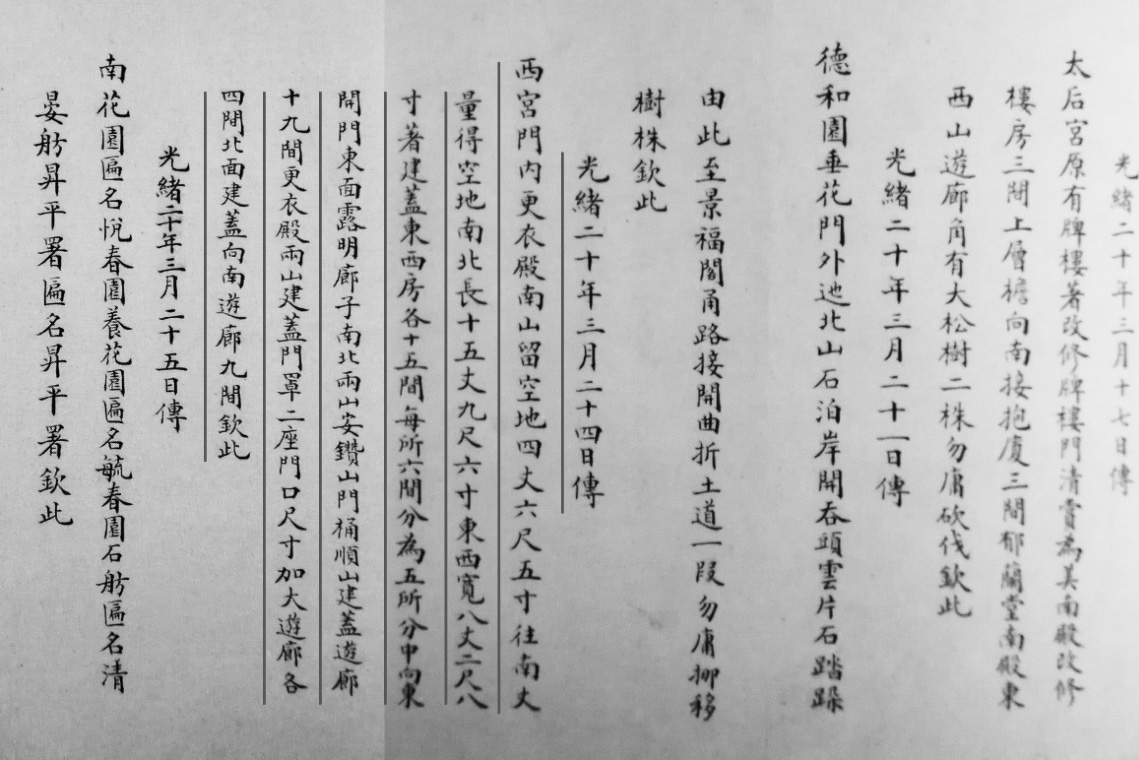 光緒二十年三月十七日傳
太后宮原有牌樓著改修牌樓門清賞為美南殿改修
樓房三間上層檐向南接抱廈三間郁蘭堂南殿東
西山遊廊角有大松樹二株勿庸砍伐欽此
光緒二十年三月二十一日傳
德和園垂花門外迆北山石泊岸開吞頭雲片石踏跺
由此至景福閣甬路接開曲折土道一段勿庸挪移
樹株欽此
光緒二十年三月二十四日傳
西宮門內更衣殿南山留空地四丈六尺五寸往南丈
量得空地南北長十五丈九尺六寸東西寬八丈二尺八
寸著建蓋東西房各十五間每所六間分為五所分中向東
開門東面露明廊子南北兩山安鑽山門桶順山建蓋遊廊
十九間更衣殿兩山建蓋門罩二座門口尺寸加大遊廊各
四間北面建蓋向南遊廊九間欽此
光緒二十年三月二十五日傳
南花園匾名悅春園養花園匾名毓春園石舫匾名清
晏舫昇平署匾名昇平署欽此